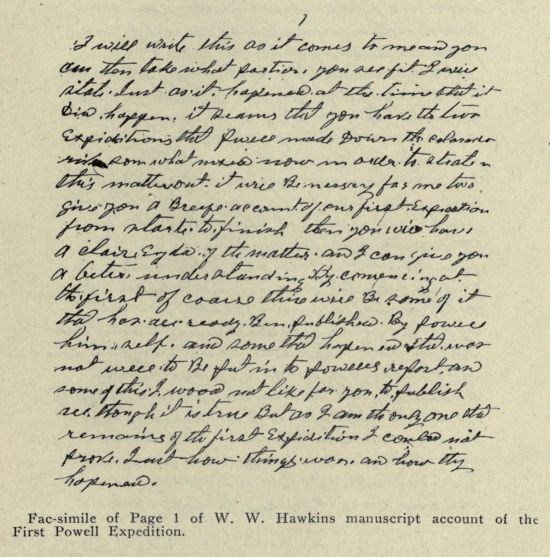 1
I will write this as it comes to me and you
can then take what portion you see fit I will
state Just as it hapened at the time that it
Did happen. it seams that you have the two
Expiditions that Powell made Down the Colorado
som what mixed now in order to strate n
this matter out it will Be nessary for me two
give you a Breef account of our first Expedition
from start to finish then you will have
a clair Eyda of the matter and I can give you
a beter understanding By comencing at
the first of coarse there will Be some of it
that has allready Ben published By Powell
him self. and some that hapened that was
not well to Be put in to Powells report and
some of this I wood not like for you to publish
all though it is true But as I am the only one that
remains of the first Expidition I could not
prove Just how things was and how they
hapened.
Fac-simile of Page 1 of W. W. Hawkins manuscript account of the
First Powell Expedition.